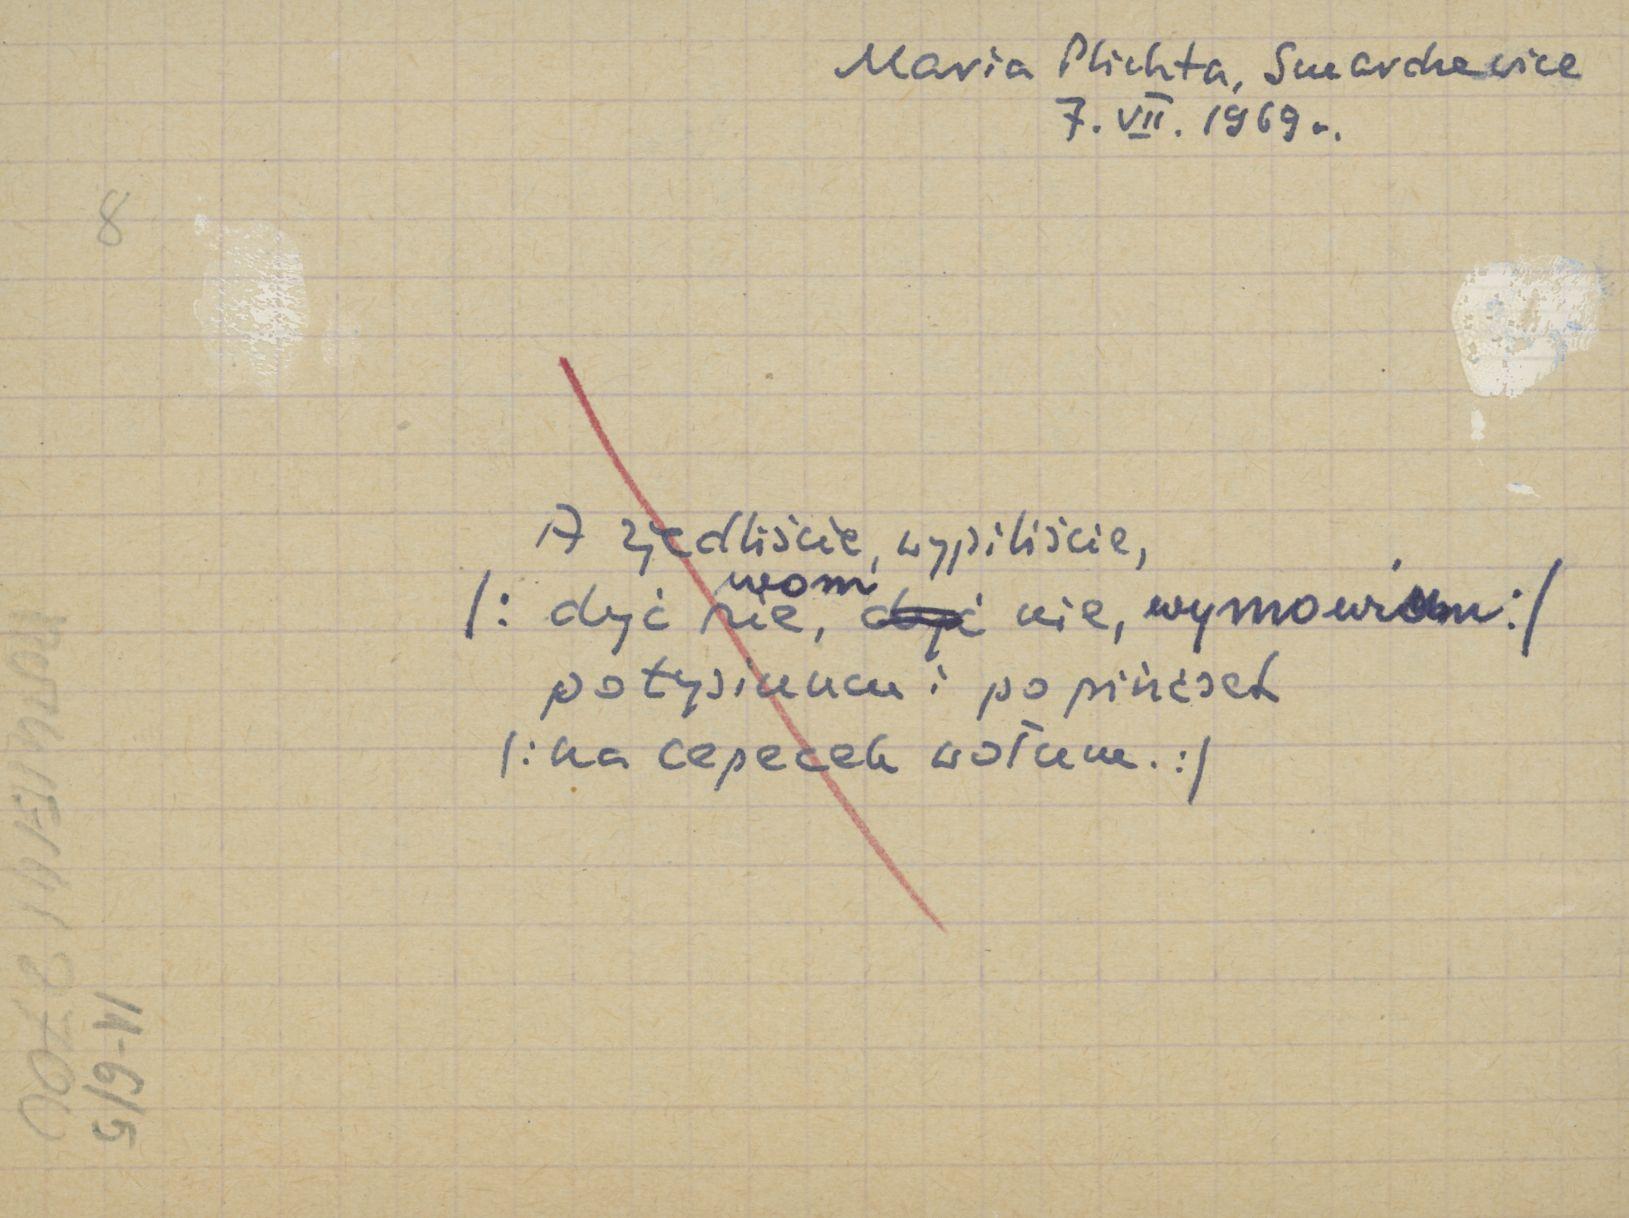 Maria Plichta, Smardzewice
7. VII. 1969 r.
8
A zjedliście, wypiliście,
wom
/: dyć nie, dyć nie, wymowiom :/
po tysiuncu i po pińcset
/: na cepecek wołum. :/
14-6/5